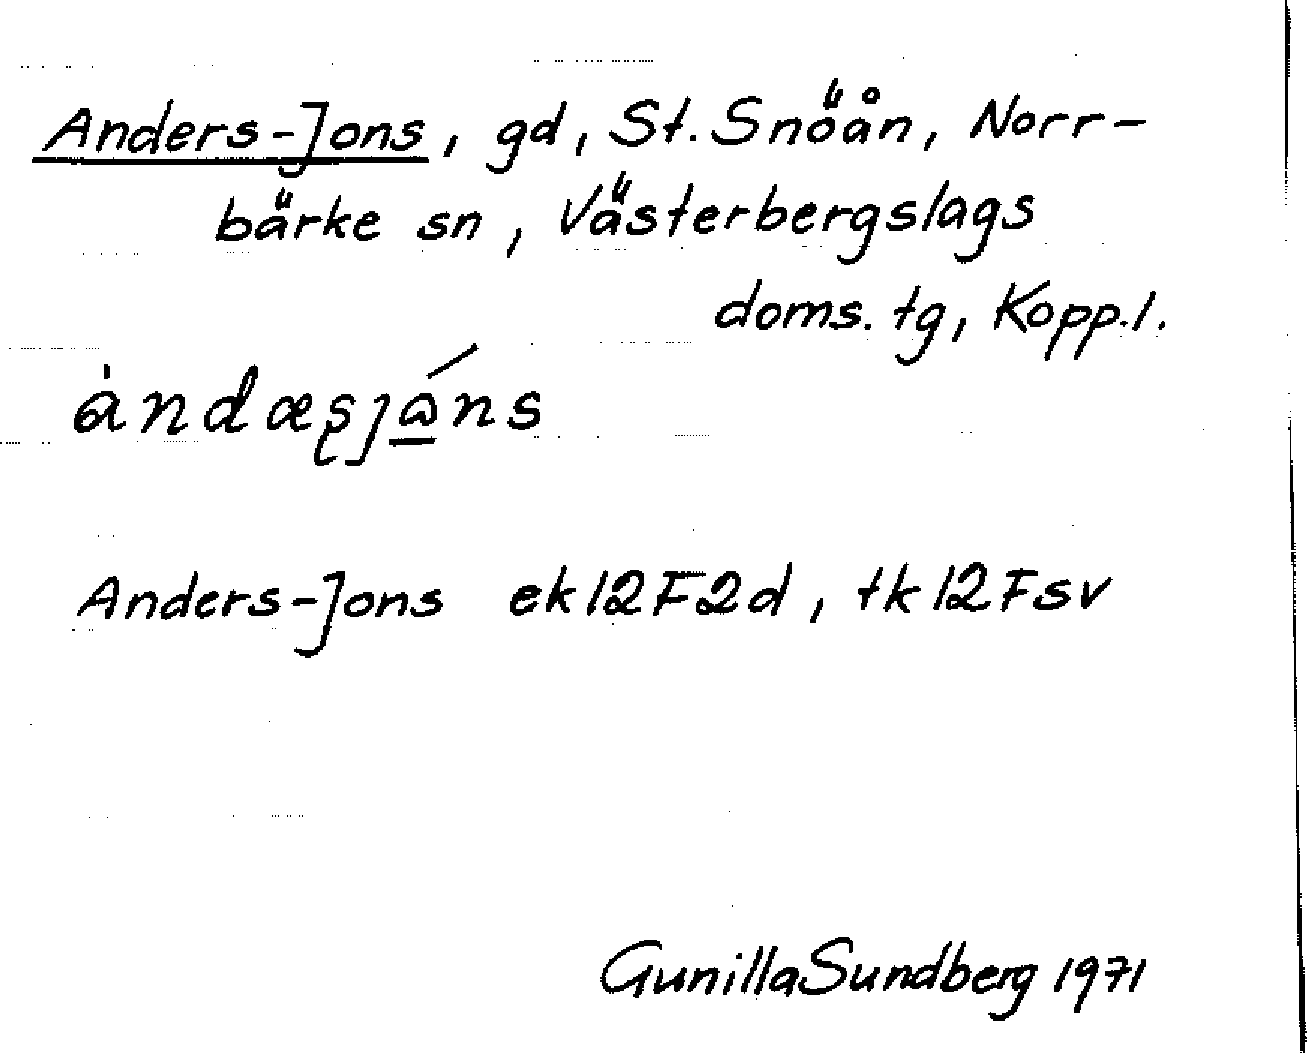 Anders-Jons, gd, St. Snöån, Norr-
bärke sn, Västerbergslags
doms. tg, Kopp.l.
Anders-Jons ek12F2d, tk12Fsv
Gunilla Sundberg 1971